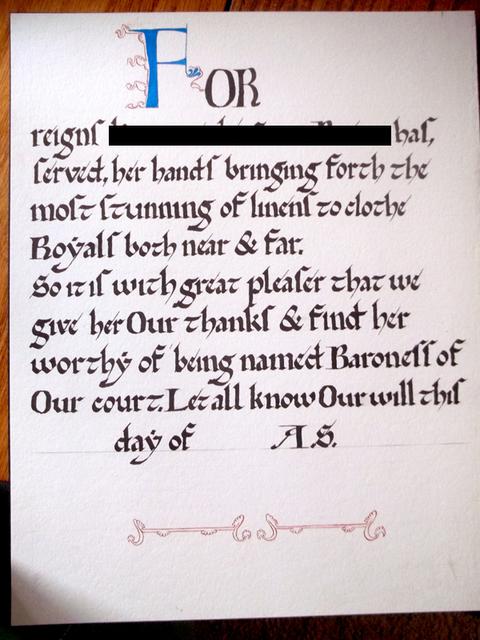 FOR
reigns has,
served, her hands bringing forth the
most stunning of linens to clothe
Royals both near & far.
So it is with great pleaser that we
give her Our thanks & find her
worthy of being named Baroness of
Our court. Let all know Our will this
day of A.S.